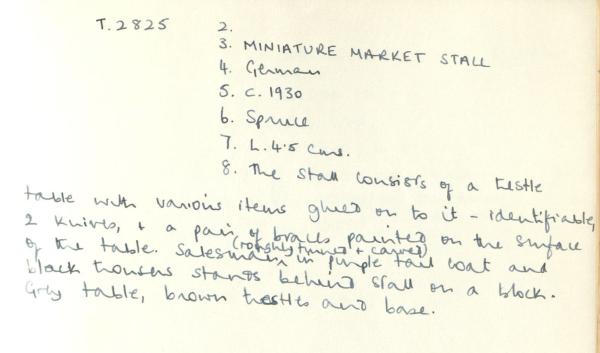 T.2825 2.
3. MINIATURE MARKET STALL
4. German
5. c. 1930
6. Spruce
7. L. 4.5 cms.
8. The stall consists of a testle
table with various items glued on to it - identifiable,
2 knives, + a pair of braces painted on the surface
of the table. Salesman (roughly turned + carved) in purple tail coat and
black trousers stands behind stall on a block.
Grey table, brown trestles and base.